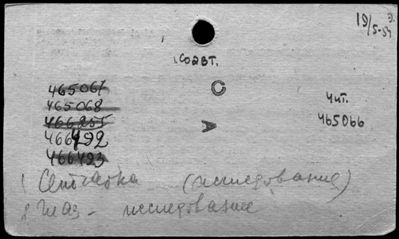 19/5-59 э.
соавт.
465067
465068
466255
466492
466493
Чит.
465066
С
А
1 Сетчатка (исследование)
8 Глаз - исследование